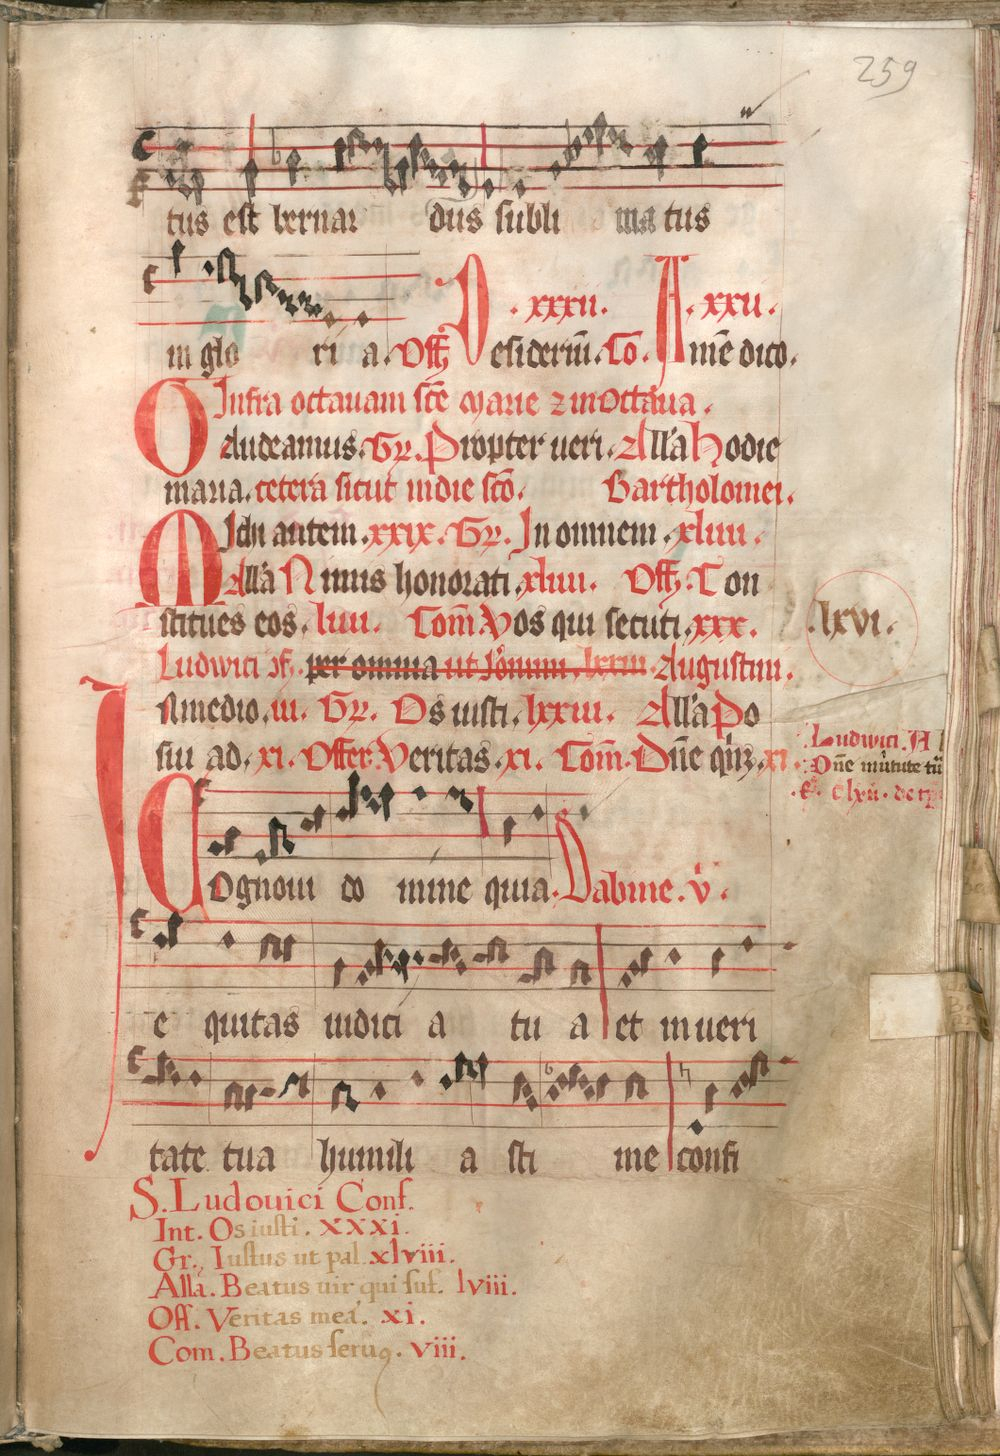 259
tus est bernar dus subli ma tus
.xxxii. .xxii.
in glo ri a. Off͛ Desideriū. Co. Amē dico.
Infra octauam scē marie ⁊ in octaua.
Gaudeamus. Gr̄. Propter ueri. Allā Hodie
maria. cetera sicut in die scō. Bartholomei.
Michi autem .xxix. Gr̄. In omnem .xliiii.
Allā Nimis honorati .xliii. Off͛. Con
stitues eos .liiii. Com̄. Vos qui secuti .xxx.
.lxvi.
Ludwici per omnia ut Augustini.
In medio .iii. Gr̄. Os iusti .lxxiii. Allā Po
sui ad .xi. Offer. Veritas .xi. Com̄. Dn̄e .xi.
Ludwici.
Dn̄e in uirtute tu
Cognoui do mine quia. Sabine. v̄.
e quitas iudici a tu a et in ueri
tate tua humili a sti me confi
S. Ludouici Conf.
Int. Os iusti. xxxi.
Gr. Iustus ut pal. xlviii.
Allā. Beatus uir qui suf. lviii.
Off. Veritas mea. xi.
Com. Beatus seruꝯ. viii.